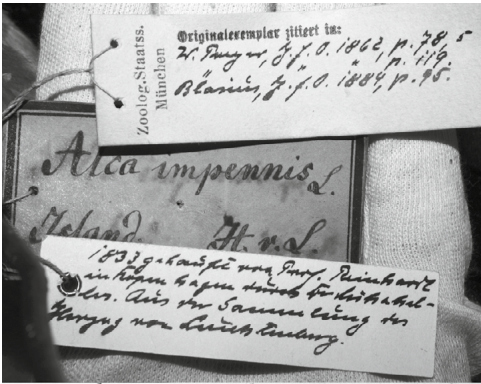 Zoolog. Staatss.
München
Originalexemplar zitiert in:
W. Preyer, J. f. O. 1862, p. 78, 5
" p. 119.
Blasius, J. f. O. 1884, p. 95.
Alca impennis L.
Island H. v. L.
1833 gekauft von Prof. Reinhardt
in Kopenhagen durch
Aus der Sammlung des
Herzog von Leuchtenberg.